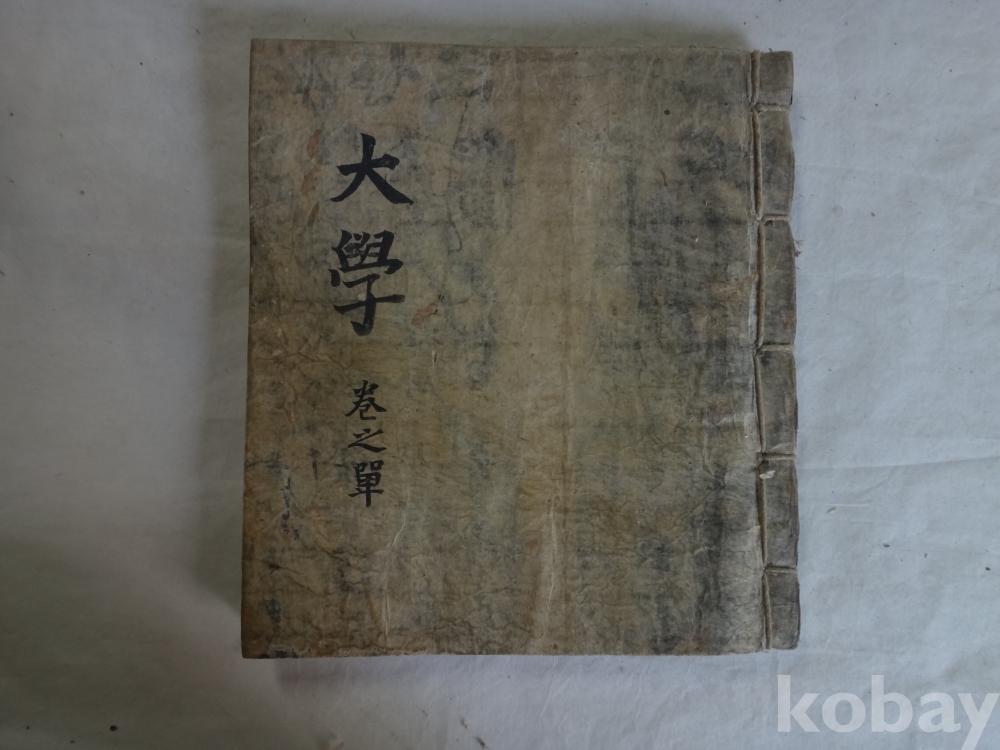 大學
卷之單
kobay